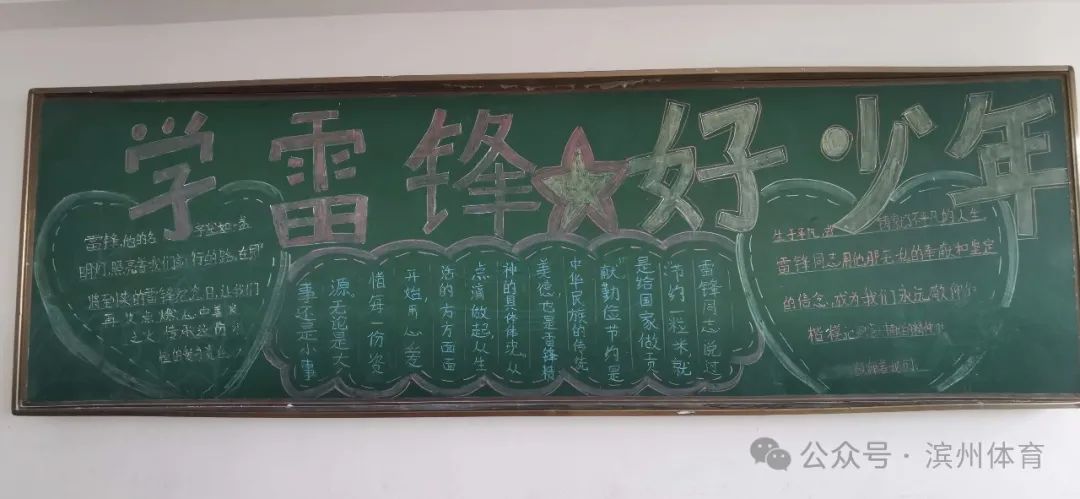 学雷锋好少年
雷锋,他的名字宛如一盏
明灯,照亮着我们前行的路,在即
将到来的雷锋纪念日,让我们
再次点燃心中善良
之火,传承这份
雷锋同志说过
"节约一粒米,就
是给国家做贡
献"勤俭节约是
中华民族的传统
美德,也是雷锋精
神的具体体现。从
点滴做起,从生
活的方方面面
开始,用心爱
惜每一份资
源。无论是大
事还是小事
生于平凡,不平凡的人生
雷锋同志用他那无私的奉献和坚定
的信念,成为我们永远敬仰的
楷模
着我们
公众号·滨州体育